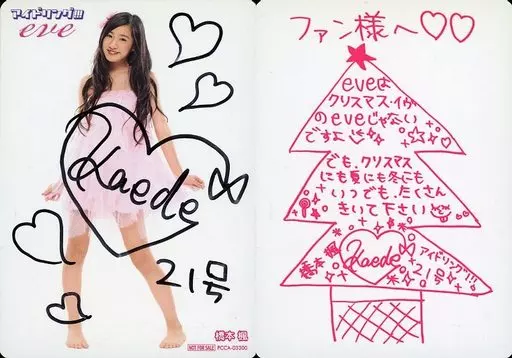 アイドリング!!!
eve
Kaede
21号
橋本 楓
NOT FOR SALE PCCA-03300
ファン様へ♡♡
eveは
クリスマス・イヴ
のeveじゃない
ですよ
でも、クリスマス
にも夏にも冬にも
いつでも、たくさん
きいて下さい
橋本 楓 Kaede アイドリング!!!
21号